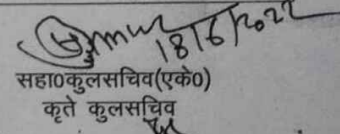 18/6/2022
सहा०कुलसचिव(एके०)
कृते कुलसचिव